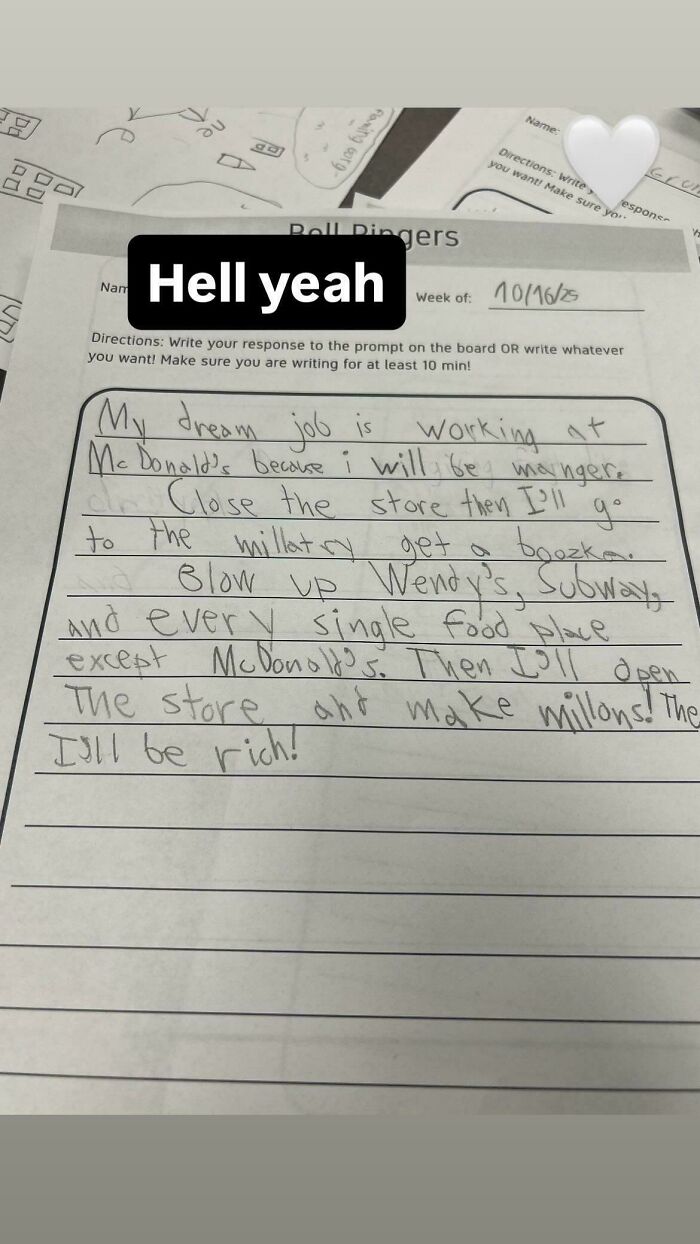 parking
Name:
Directions: Write
you want! Make sure you
response
Bell Ringers
Hell yeah
Nam
Week of: 10/16/25
Directions: Write your response to the prompt on the board OR write whatever
you want! Make sure you are writing for at least 10 min!
My dream job is working at
McDonald's because i will be mainger.
Close the store then I'll go
to the millatry get a boozka.
Blow up Wendy's, Subway,
and every single food place
except McDonald's. Then I'll open
The store and make millons! The
I'll be rich!